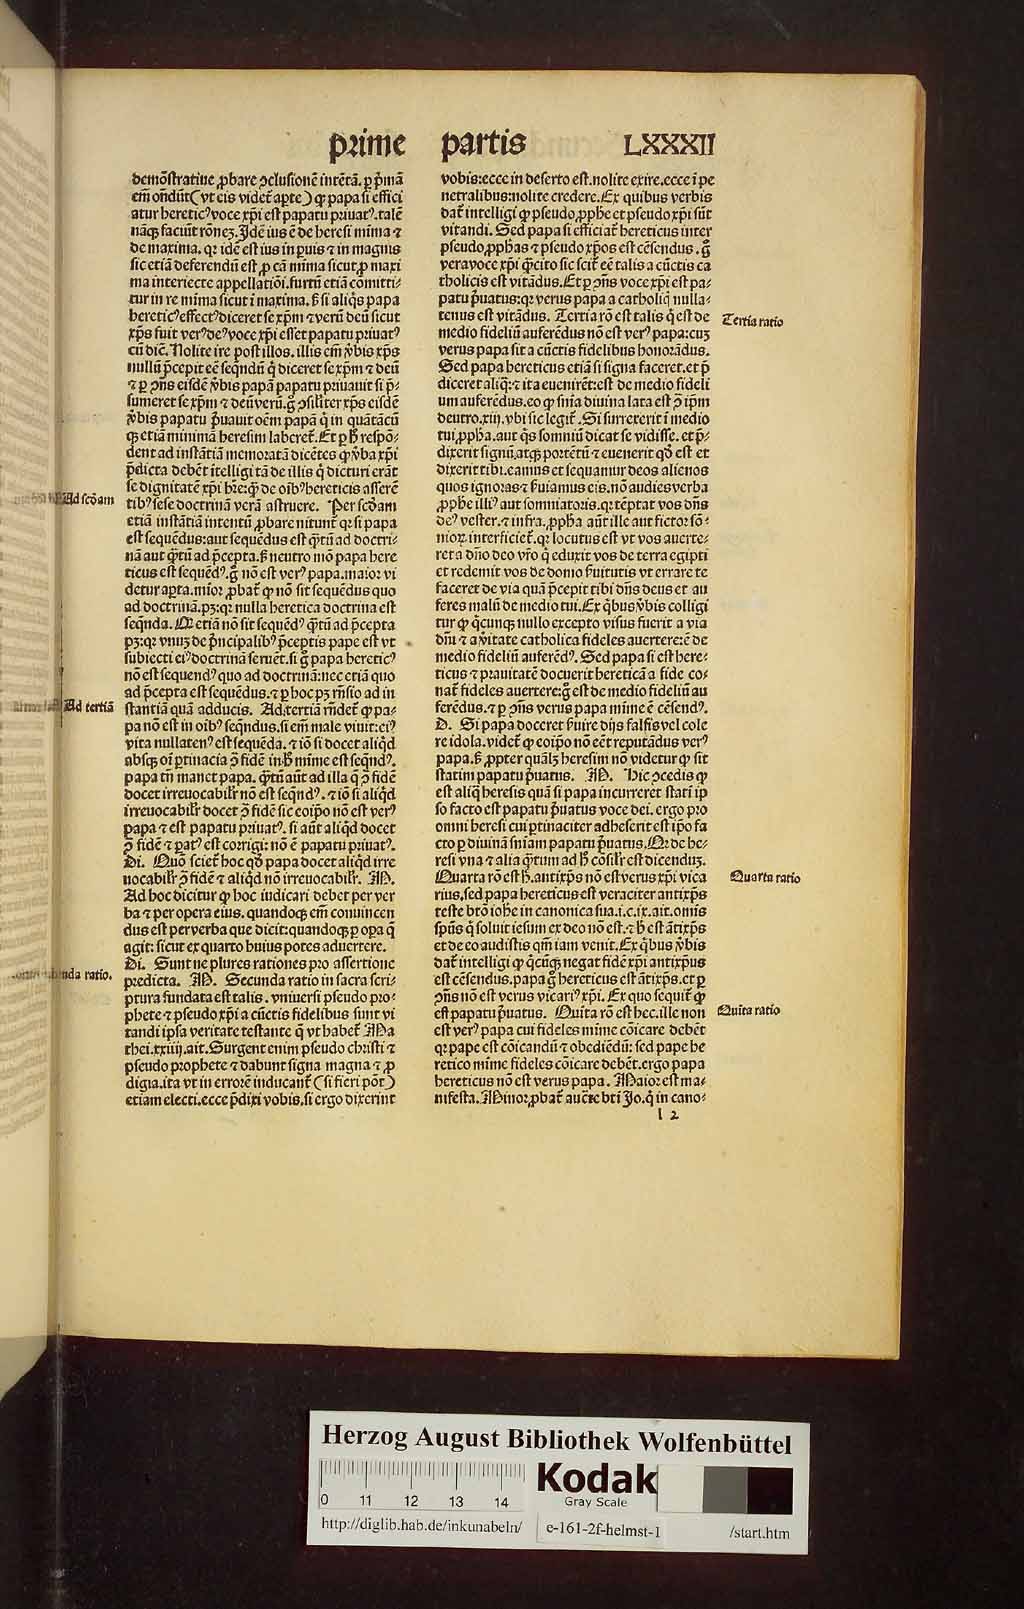 prime partis LXXXII
demōstratiue ꝓbare ↄclusionē intētā. ꝑ p̄mā
em̄ on̄dūt (vt eis videt̄ aꝑte) ꝙ papa si effici
atur hereticꝰ voce xp̄i est papatu priuatꝰ. talē
nāqꝫ faciūt rōneꝫ. Idē ius ē de heresi mīma ⁊
de maxima. qꝛ idē est ius in ꝑuis ⁊ in magnis
sic etiā deferendū est ꝓ cā mīma sicut ꝓ maxi
ma interiecte appellatiōi. furtū etiā comitti⸗
tur in re mīma sicut ī maxima. sꝫ si aliq̄s papa
hereticꝰ effectꝰ diceret se xp̄m ⁊ verū deū sicut
xp̄s fuit verꝰ deꝰ voce xp̄i esset papatu priuatꝰ
cū dic̄. Nolite ire post illos. illis em̄ v̄bis xp̄s
nullū p̄cepit eē seq̄ndū q̄ diceret se xp̄m ⁊ deū
⁊ ꝑ ↄn̄s eisdē v̄bis papā papatu priuauit si p̄⸗
sumeret se xp̄m ⁊ deū verū. g̊ ↄsil̄iter xp̄s eisdē
v̄bis papatu p̄uauit oēm papā q̄ in quātācū
qꝫ etiā minimā heresim laberet̄. Et ꝑ hͦ respō⸗
dent ad instātiā memoratā dicētes ꝙ v̄ba xp̄i
p̄dicta debēt ītelligi tā de illis q̄ dicturi erāt
se dignitatē xp̄i hr̄e: q̄ꝫ de oībꝰ hereticis asserē
tibꝰ sese doctrinā verā astruere. Per scd̄am
etiā instātiā intentū ꝓbare nitunt̄ qꝛ si papa
est sequēdus: aut sequēdus est q̄tū ad doctri⸗
nā aut q̄tū ad p̄cepta. sꝫ neutro mō papa here
ticus est sequēdꝰ. g̊ nō est verꝰ papa. maior vi
detur aꝑta. mīor ꝓbat̄ ꝙ nō sit sequēdus quo
ad doctrinā. pꝫ: qꝛ nulla heretica doctrina est
seq̄nda. Qꝛ etiā nō sit sequēdꝰ q̄tū ad p̄cepta
pꝫ: qꝛ vnuꝫ de p̄ncipalibꝰ p̄ceptis pape est vt
subiecti eiꝰ doctrinā seruēt. si g̊ papa hereticꝰ
nō est sequendꝰ quo ad doctrinā: nec etiā quo
ad p̄cepta est sequēdus. ⁊ ꝑ hoc pꝫ rn̄sio ad in
stantiā quā adducis. Ad tertiā rn̄det̄ ꝙ pa⸗
pa nō est in oībꝰ seq̄ndus. si em̄ male viuit: eiꝰ
vita nullatenꝰ est sequēda. ⁊ iō si docet aliq̄d
absqꝫ oī ꝑtinacia ↄ̄ fidē in hͦ mīme est seq̄ndꝰ.
papa tn̄ manet papa. q̄tū aūt ad illa q̄ ↄ̄ fidē
docet irreuocabilr̄ nō est seq̄ndꝰ. ⁊ iō si aliq̄d
irreuocabilr̄ docet ↄ̄ fidē sic eoip̄o nō est verꝰ
papa ⁊ est papatu priuatꝰ. si aūt aliq̄d docet
ↄ̄ fidē ⁊ ꝑatꝰ est corrigi: nō ē papatu priuatꝰ.
Di. Quō sciet̄ hoc qd̄ papa docet aliq̄d irre
uocabilr̄ ↄ̄ fidē ⁊ aliq̄d nō irreuocabilr̄. M.
Ad hoc dicitur ꝙ hoc iudicari debet per ver
ba ⁊ per opera eius. quandoqꝫ em̄ conuincen
dus est per verba que dicit: quandoqꝫ ꝑ oꝑa q̄
agit: sicut ex quarto huius potes aduertere.
Di. Sunt ne plures rationes pro assertione
predicta. M. Secunda ratio in sacra scri⸗
ptura fundata est talis. vniuersi pseudo pro⸗
phete ⁊ pseudo xp̄i a cūctis fidelibus sunt vi
tandi ipsa veritate testante q̄ vt habet̄ Ma
thei. xxiiij. ait. Surgent enim pseudo christi ⁊
pseudo prophete ⁊ dabunt signa magna ⁊ ꝓ
digia. ita vt in errorē inducant̄ (si fieri pōt)
etiam electi. ecce p̄dixi vobis. si ergo dixerint
Ad scd̄am
Ad tertiā
vobis: ecce in deserto est. nolite exire. ecce ī pe
netralibus: nolite credere. Ex quibus verbis
dat̄ intelligi ꝙ pseudo ꝓph̄e et pseudo xp̄i sūt
vitandi. Sed papa si efficiat̄ hereticus inter
pseudo ꝓph̄as ⁊ pseudo xp̄os est cēsendus. g̊
vera voce xp̄i q̄cito sic scit̄ eē talis a cūctis ca
tholicis est vitādus. Et ꝑ ↄn̄s voce xp̄i est pa⸗
patu p̄uatus: qꝛ verus papa a catholiq̄ nulla⸗
tenus est vitādus. Tertia rō est talis q̄ est de
medio fideliū auferēdus nō est verꝰ papa: cuꝫ
verus papa sit a cūctis fidelibus honorādus.
Sed papa hereticus etiā si signa faceret. et p̄
diceret aliq̄: ⁊ ita euenirēt: est de medio fideli
um auferēdus. eo ꝙ sn̄ia diuina lata est ↄ̄ ip̄m
deutro. xiij. vbi sic legit̄. Si surrexerit ī medio
tui, ꝓph̄a. aut q̄s somniū dicat se vidisse. et p̄⸗
dixerit signū. atqꝫ portētū ⁊ euenerit qd̄ est et
dixerit tibi. eamus et sequamur deos alienos
quos ignoras ⁊ fuiamus eis. nō audies verba
ꝓph̄e illiꝰ aut somniatoris. qꝛ tēptat vos dn̄s
deꝰ vester. ⁊ infra. ꝓph̄a aūt ille aut fictor sō⸗
nioꝝ interficiet̄. qꝛ locutus est vt vos auerte⸗
ret a dn̄o deo vr̄o q̄ eduxit vos de terra egipti
et redemit vos de domo fuitutis vt errare te
faceret de via quā p̄cepit tibi dn̄s deus et au
feres malū de medio tui. Ex q̄bus v̄bis colligi
tur ꝙ q̄cunqꝫ nullo excepto visus fuerit a via
dn̄i ⁊ a v̄itate catholica fideles auertere: ē de
medio fideliū auferēdꝰ. Sed papa si est here⸗
ticus ⁊ prauitatē docuerit hereticā a fide co⸗
nat̄ fideles auertere: g̊ est de medio fideliū au
ferēdus. ⁊ ꝑ ↄn̄s verus papa mīme ē cēsendꝰ.
D. Si papa doceret fuire dijs falsis vel cole
re idola. videt̄ ꝙ eoip̄o nō eēt reputādus verꝰ
papa. sꝫ ꝓpter qualꝫ heresim nō videtur ꝙ sit
statim papatu p̄uatus. M. Hic ↄcedis ꝙ
est aliq̄ heresis quā si papa incurreret statī ip
so facto est papatu p̄uatus voce dei. ergo pro
omni heresi cui ꝑtinaciter adheserit est ip̄o fa
cto ꝑ diuinā sn̄iam papatu p̄uatus. Qꝛ de he⸗
resi vna ⁊ alia q̄tum ad hͦ cōsilr̄ est dicenduꝫ.
Quarta rō est hͦ. antixp̄s nō est verus xp̄i vica
rius, sed papa hereticus est veraciter antixp̄s
teste btō ioh̄e in canonica sua. i. c. ix. ait. omnis
spūs q̄ soluit iesum ex deo nō est. ⁊ hͦ est ātixp̄s
et de eo audistis qm̄ iam venit. Ex q̄bus v̄bis
dat̄ intelligi ꝙ q̄cūqꝫ negat fidē xp̄i antixp̄us
est cēsendus. papa g̊ hereticus est ātixp̄s. et ꝑ
ↄn̄s nō est verus vicariꝰ xp̄i. Ex quo sequit̄ ꝙ
est papatu p̄uatus. Quīta rō est hec. ille non
est verꝰ papa cui fideles mīme cōicare debēt
qꝛ pape est cōicandū ⁊ obediēdū: sed pape he
retico mīme fideles cōicare debēt. ergo papa
hereticus nō est verus papa. Maior est ma⸗
nifesta. Minor ꝓbat̄ aucte bti Jo. q̄ in cano⸗
l 2
Tertia ratio
Quarta ratio
Quīta ratio
Herzog August Bibliothek Wolfenbüttel
0 11 12 13 14
Kodak
Gray Scale
http://diglib.hab.de/inkunabeln/ e-161-2f-helmst-1 /start.htm